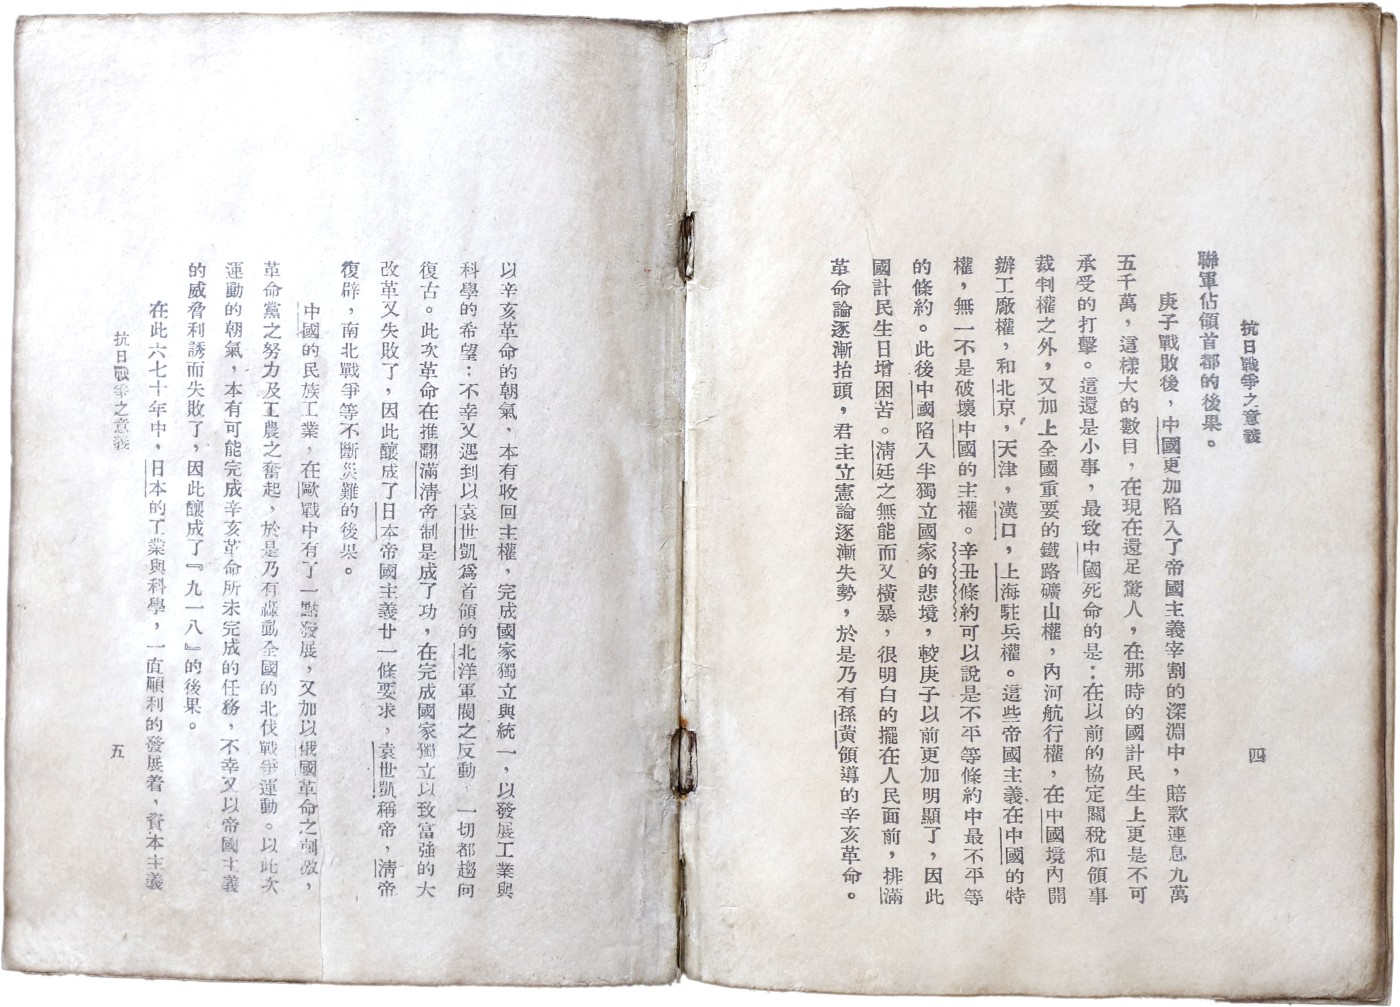 抗日戰爭之意義
四
聯軍佔領首都的後果。
庚子戰敗後，中國更加陷入了帝國主義宰割的深淵中，賠款連息九萬
五千萬，這樣大的數目，在現在還足驚人，在那時的國計民生上更是不可
承受的打擊。這還是小事，最致中國死命的是：在以前的協定關稅和領事
裁判權之外，又加上全國重要的鐵路礦山權，內河航行權，在中國境內開
辦工廠權，和北京，天津，漢口，上海駐兵權。這些帝國主義在中國的特
權，無一不是破壞中國的主權。辛丑條約可以說是不平等條約中最不平等
的條約。此後中國陷入半獨立國家的悲境，較庚子以前更加明顯了，因此
國計民生日增困苦。淸廷之無能而又橫暴，很明白的擺在人民面前，排滿
革命論逐漸抬頭，君主立憲論逐漸失勢，於是乃有孫黃領導的辛亥革命。
以辛亥革命的朝氣，本有收回主權，完成國家獨立與統一，以發展工業與
科學的希望；不幸又遇到以袁世凱爲首領的北洋軍閥之反動，一切都趨向
復古。此次革命在推翻滿淸帝制是成了功，在完成國家獨立以致富強的大
改革又失敗了，因此釀成了日本帝國主義廿一條要求，袁世凱稱帝，淸帝
復辟，南北戰爭等不斷災難的後果。
中國的民族工業，在歐戰中有了一點發展，又加以俄國革命之刺激，
革命黨之努力及工農之奮起，於是乃有轟動全國的北伐戰爭運動。以此次
運動的朝氣，本有可能完成辛亥革命所未完成的任務，不幸又以帝國主義
的威脅利誘而失敗了，因此釀成了『九一八』的後果。
在此六七十年中，日本的工業與科學，一直順利的發展着，資本主義
抗日戰爭之意義
五